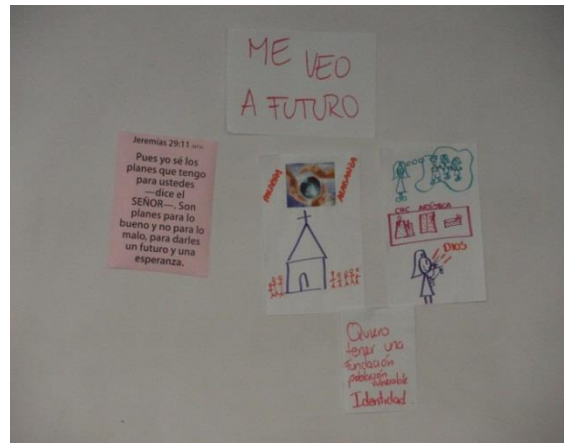 ME VEO
A FUTURO
Jeremías 29:11
Pues yo sé los
planes que tengo
para ustedes
—dice el
SEÑOR—. Son
planes para lo
bueno y no para lo
malo, para darles
un futuro y una
esperanza.
DIOS
Quiero
tener una
Fundación
población
vulnerable
Identidad